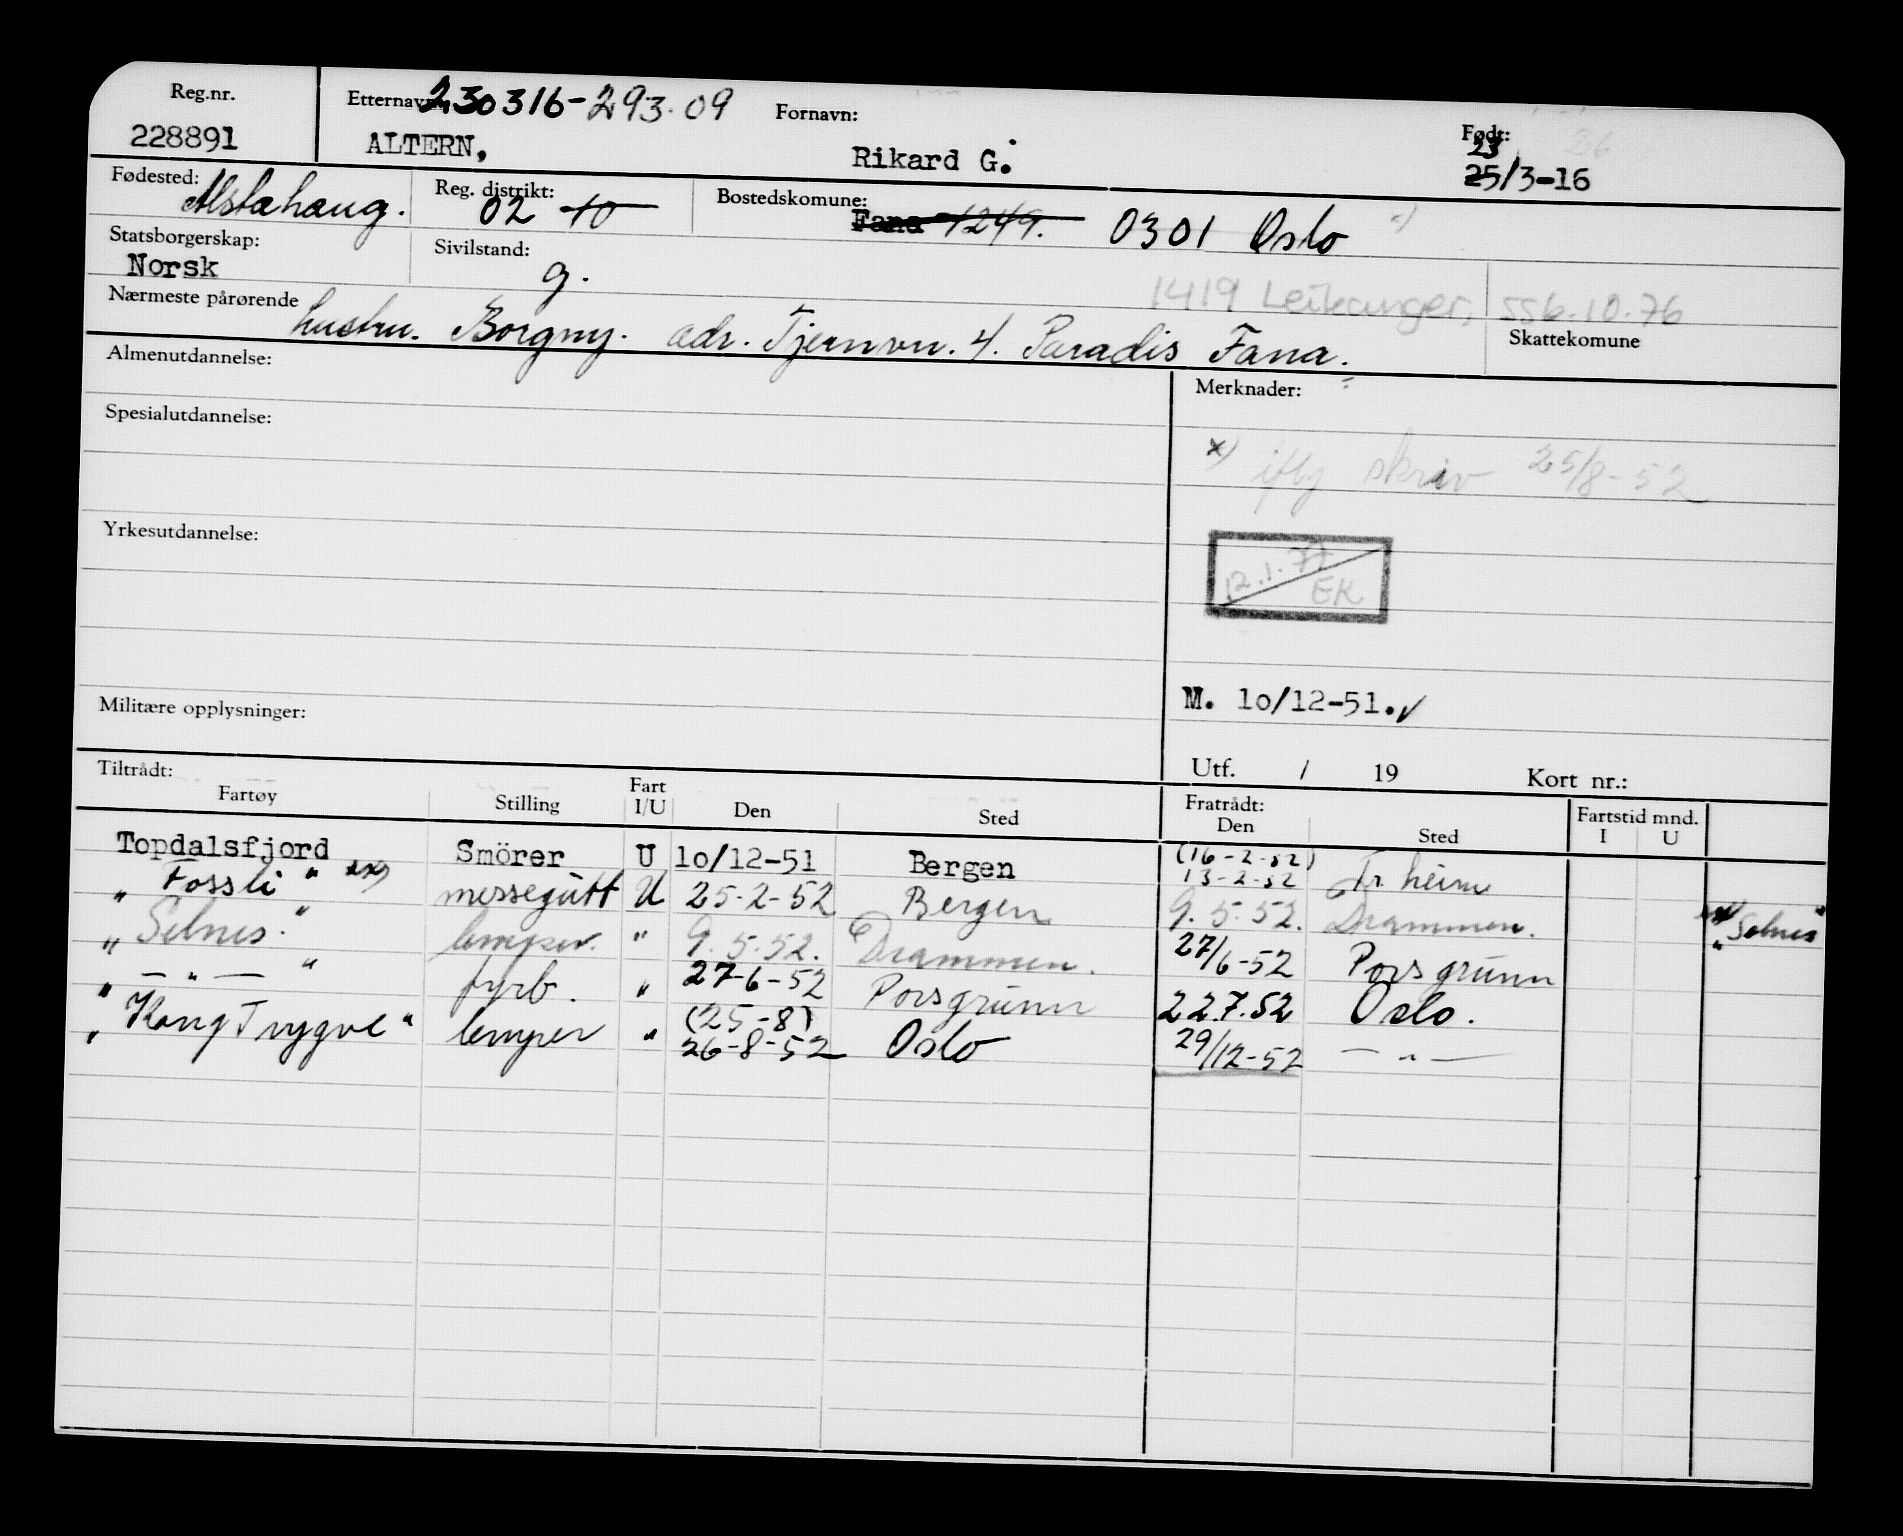 Reg.nr. Etternavn: 230316-293.09 Fornavn: Født:
228891 ALTERN, Rikard G. 23
25/3-16
Fødested: Alstahaug. Reg. distrikt: 02 10 Bostedskomune: Fana 1249. 0301 Oslo
Statsborgerskap: Norsk Sivilstand: g.
1419 Leikanger, 556.10.76
Nærmeste pårørende hustru. Borgny. adr. Tjernvn. 4. Paradis Fana.
Skattekomune
Almenutdannelse: Merknader:
Spesialutdannelse:
x) iflg skriv 25/8-52
Yrkesutdannelse:
12.1.77
EK
Militære opplysninger: M. 10/12-51.
Utf. / 19 Kort nr.:
Tiltrådt: Fratrådt: Fartstid mnd.
Fartøy Stilling Fart I/U Den Sted Den Sted I U
Topdalsfjord Smörer U 10/12-51 Bergen (16-2-52) 13-2-52 Tr.heim
" Fossli " messegutt U 25-2-52 Bergen 9.5.52. Drammen. "Selnes"
" Selnes. " lemper. " 9.5.52. Drammen. 27/6-52 Porsgrunn
" — " — " fyrb. " 27-6-52 Porsgrunn 22.7.52 Oslo.
" Kong Trygve " lemper " (25-8) 26-8-52 Oslo 29/12-52 — " —